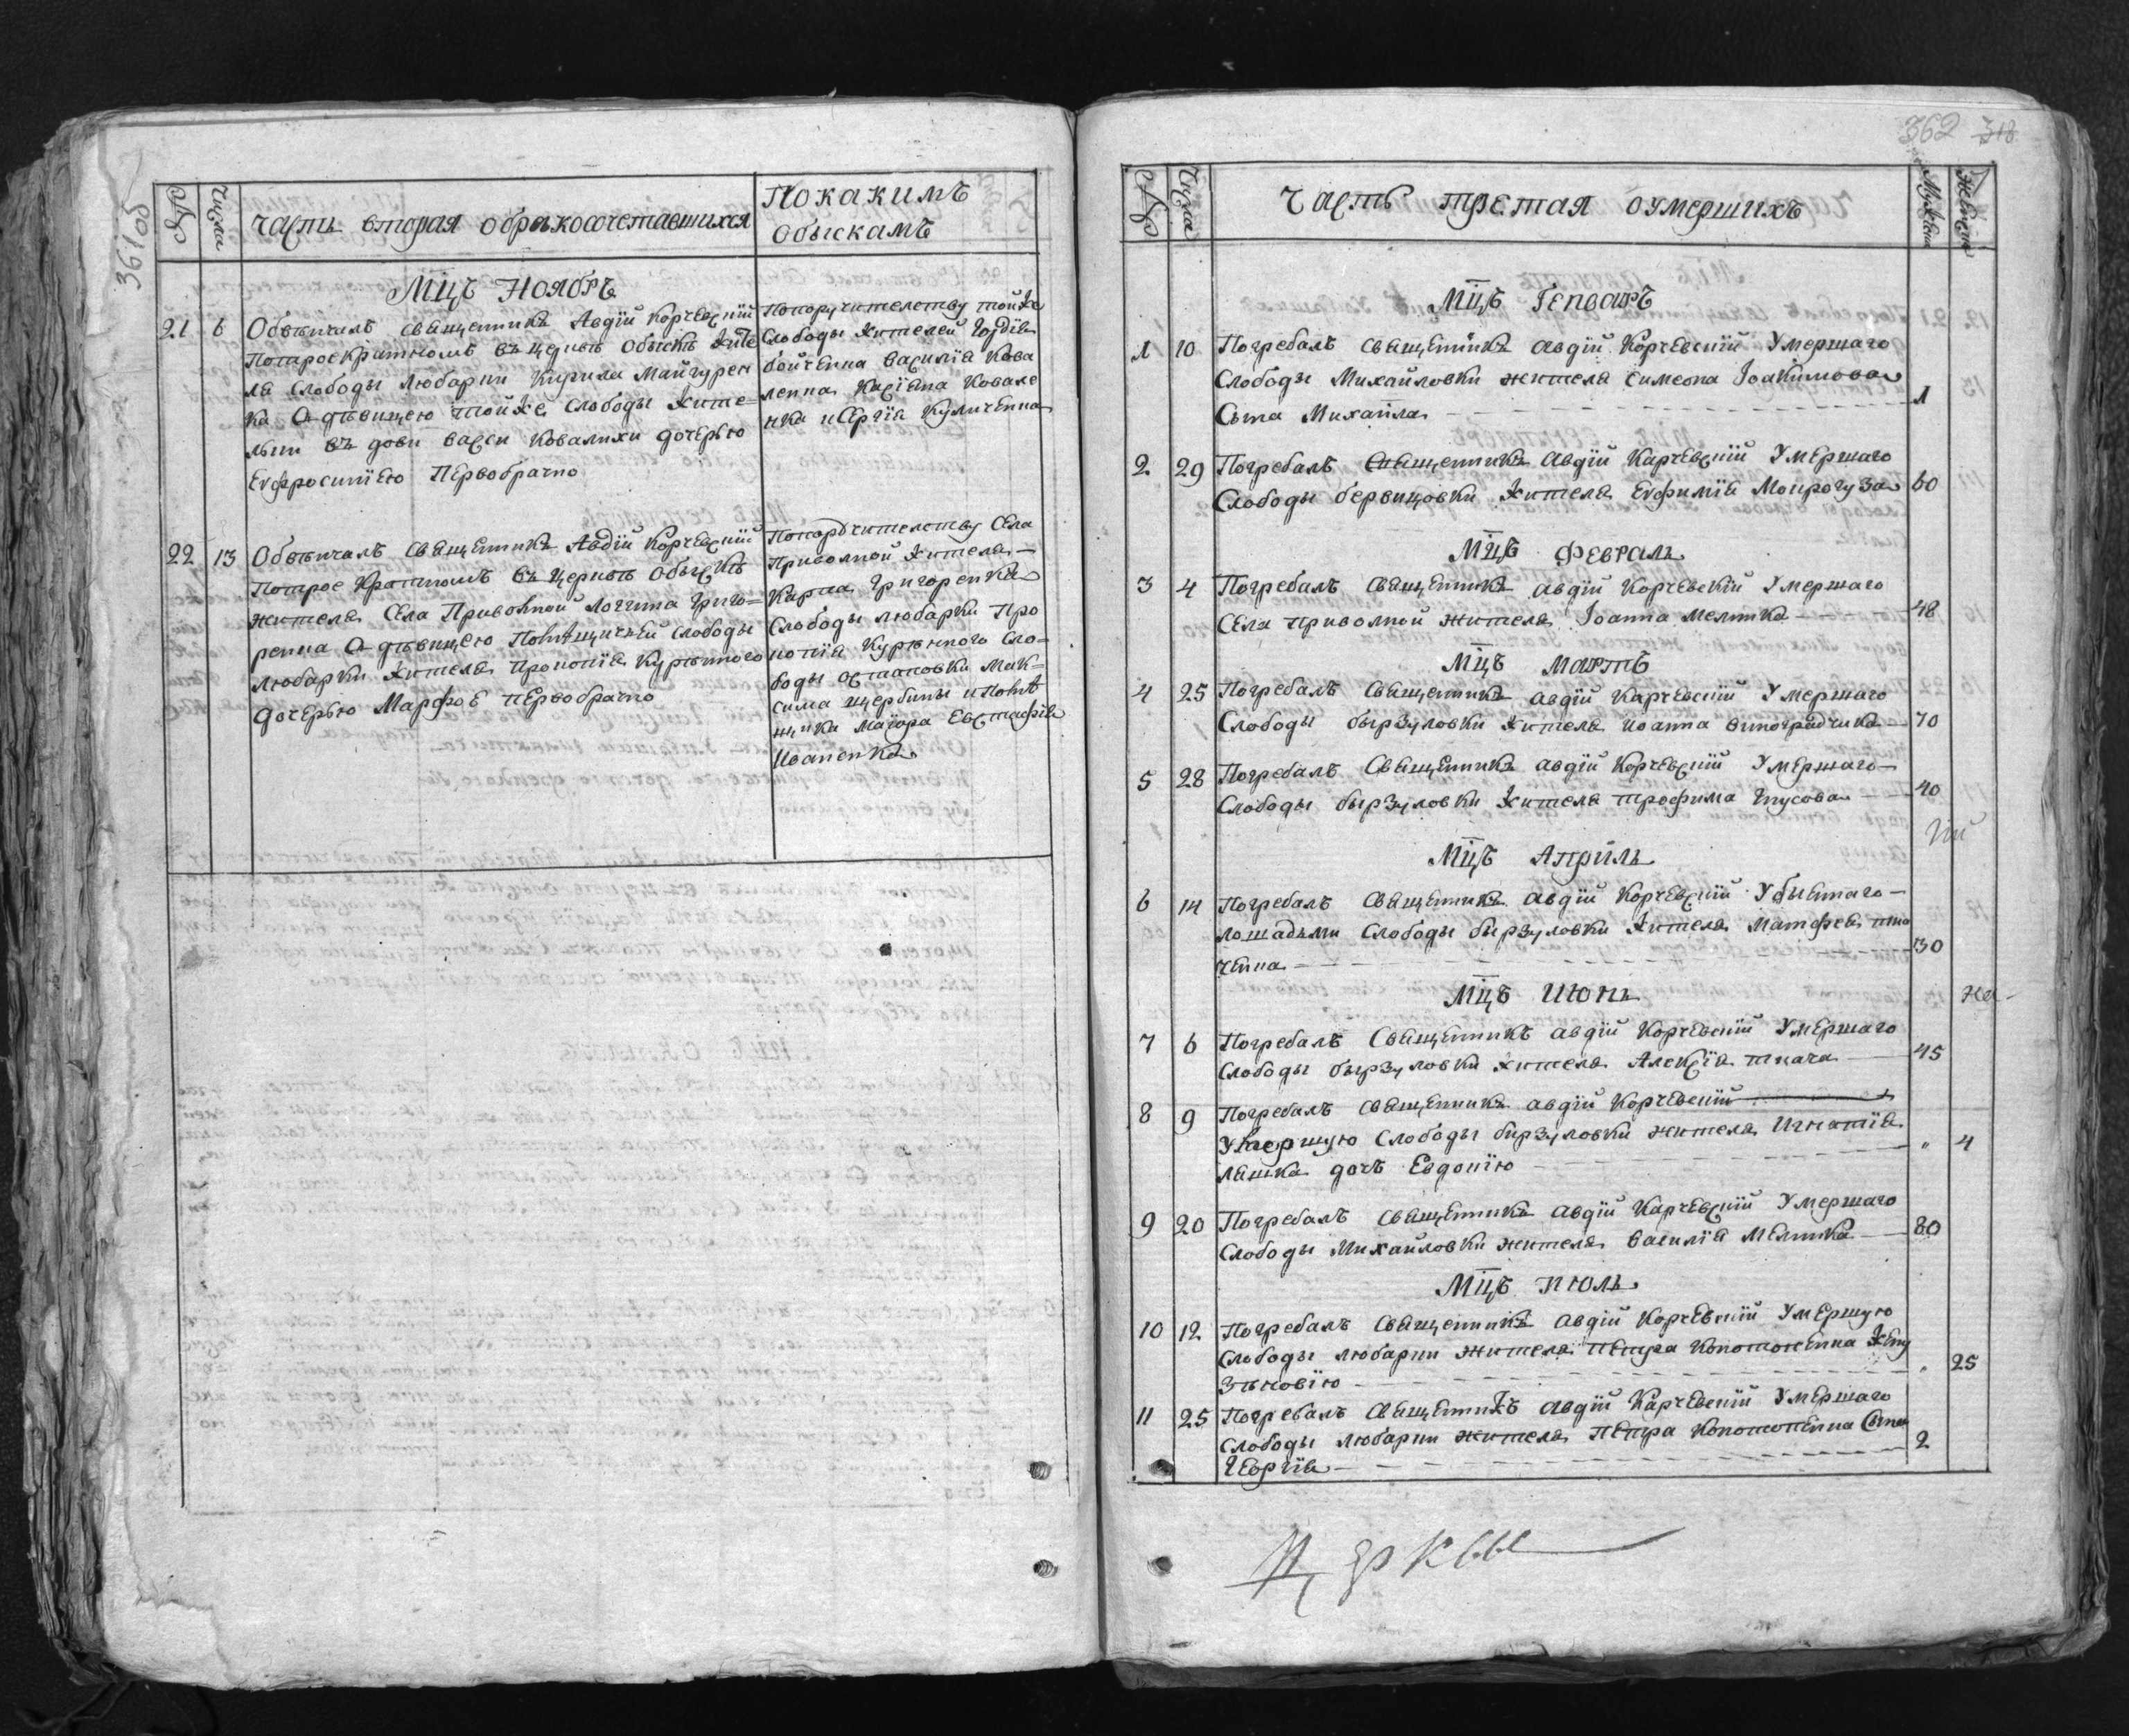 361 об
№
Числа
Часть вторая обракосочетавшихся
Покакимъ
Обыскамъ
Мцъ Ноябрь
21 6 Обвѣнчалъ священникъ Авдїй Корчевскїй
Потроекратномъ въ церквѣ Обыскѣ жите
ля слободы Любарки Кирила Майчурен
ка Сдѣвицею тойже слободы жите=
льки вдови Васси Ковалихи дочерью
Еѵфросинїею Первобрачно
Попоручителству тойже
Слободы жителей Гордѣя
бойченка Василїя Кова
ленка Касїяна Ковале
нка и Сергїя Куличенка
22 13 Обвѣнчалъ Священникъ Авдїй Корчевскїй
Потрое Кратномъ въ церквѣ Обыскѣ
жителя Села Привольной Логгина Григо=
ренка Сдѣвицею Помѣщичьей Слободы
Любарки жителя Прокопїя Курѣнного
дочерью Марфоѣ первобрачно
Попоручителству Села
Приволной жителя
Карпа Григоренка
Слободы Любарки Про
копїя Курѣнного Сло=
боды Остаповки Мак=
сима Щербины и Помѣ
щика Маіора Евстафїя
Иваненка
362 318
№
Числа
Часть третая оумершихъ
Мужеска
Женска
Мцъ Генварь
1 10 Погребалъ священникъ Авдїй Корчевскїй Умершаго
Слободы Михайловки жителя Симеона Іоакимова
Сына Михаила 1
2 29 Погребалъ Священникъ Авдїй Карчевскїй Умершаго
Слободы бервицовки жителя Еѵфимїя Мокрогуза 60
Мцъ Февраль
3 4 Погребалъ Священникъ Авдїй Корчевскїй Умершаго
Села приволной жителя Іоанна Мелника 48
Мцъ Мартъ
4 25 Погребалъ Священникъ Авдїй Карчевскїй Умершаго
Слободы бырзуловки жителя Иоанна Виноградчика 70
5 28 Погребалъ Священникъ Авдїй Корчевскїй Умершаго
Слободы бырзуловки жителя Трофима Гнусова 40
Мцъ Априль
6 14 Погребалъ Священникъ Авдїй Корчевскїй Убиеннаго
лошадьми Слободы бирзуловки жителя Матфея
ченка 30
Мцъ Июнь
7 6 Погребалъ Священникъ Авдїй Корчевскїй Умершаго
Слободы бырзуловки жителя Алексїя ткача 45
8 9 Погребалъ Священникъ Авдїй Корчевскїй
Умершую Слободы бирзуловки жителя Игнатїя
Ляшка дочь Евдокїю " 4
9 20 Погребалъ Священникъ Авдїй Карчевскїй Умершаго
Слободы Михайловки жителя Василїя Мелника 80
Мцъ июль
10 12 Погребалъ Священникъ Авдїй Корчевскїй Умершую
Слободы Любарки жителя Петра Кономоненка жену
Зѣновїю " 25
11 25 Погребалъ Священникъ Авдїй Карчевскїй Умершаго
Слободы Любарки жителя Петра Кономоненка Сына
Георгїя 2
Церквы